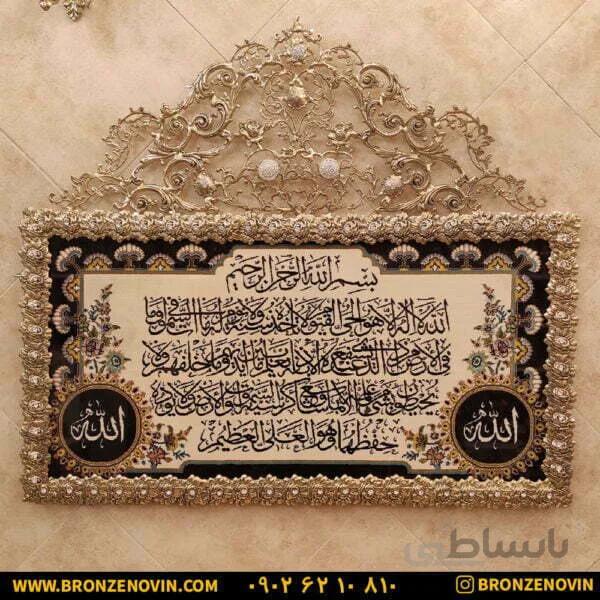 بسم الله الرحمن الرحيم
الله لا اله الا هو الحي القيوم لا تاخذه سنة ولا نوم له ما في السموات وما
في الارض من ذا الذي يشفع عنده الا باذنه يعلم ما بين ايديهم وما خلفهم ولا
يحيطون بشيء من علمه الا بما شاء وسع كرسيه السموات والارض ولا يؤده
حفظهما وهو العلي العظيم
الله
الله
WWW.BRONZENOVIN.COM ۰۹۰۲ ۶۲ ۱۰ ۸۱۰ BRONZENOVIN